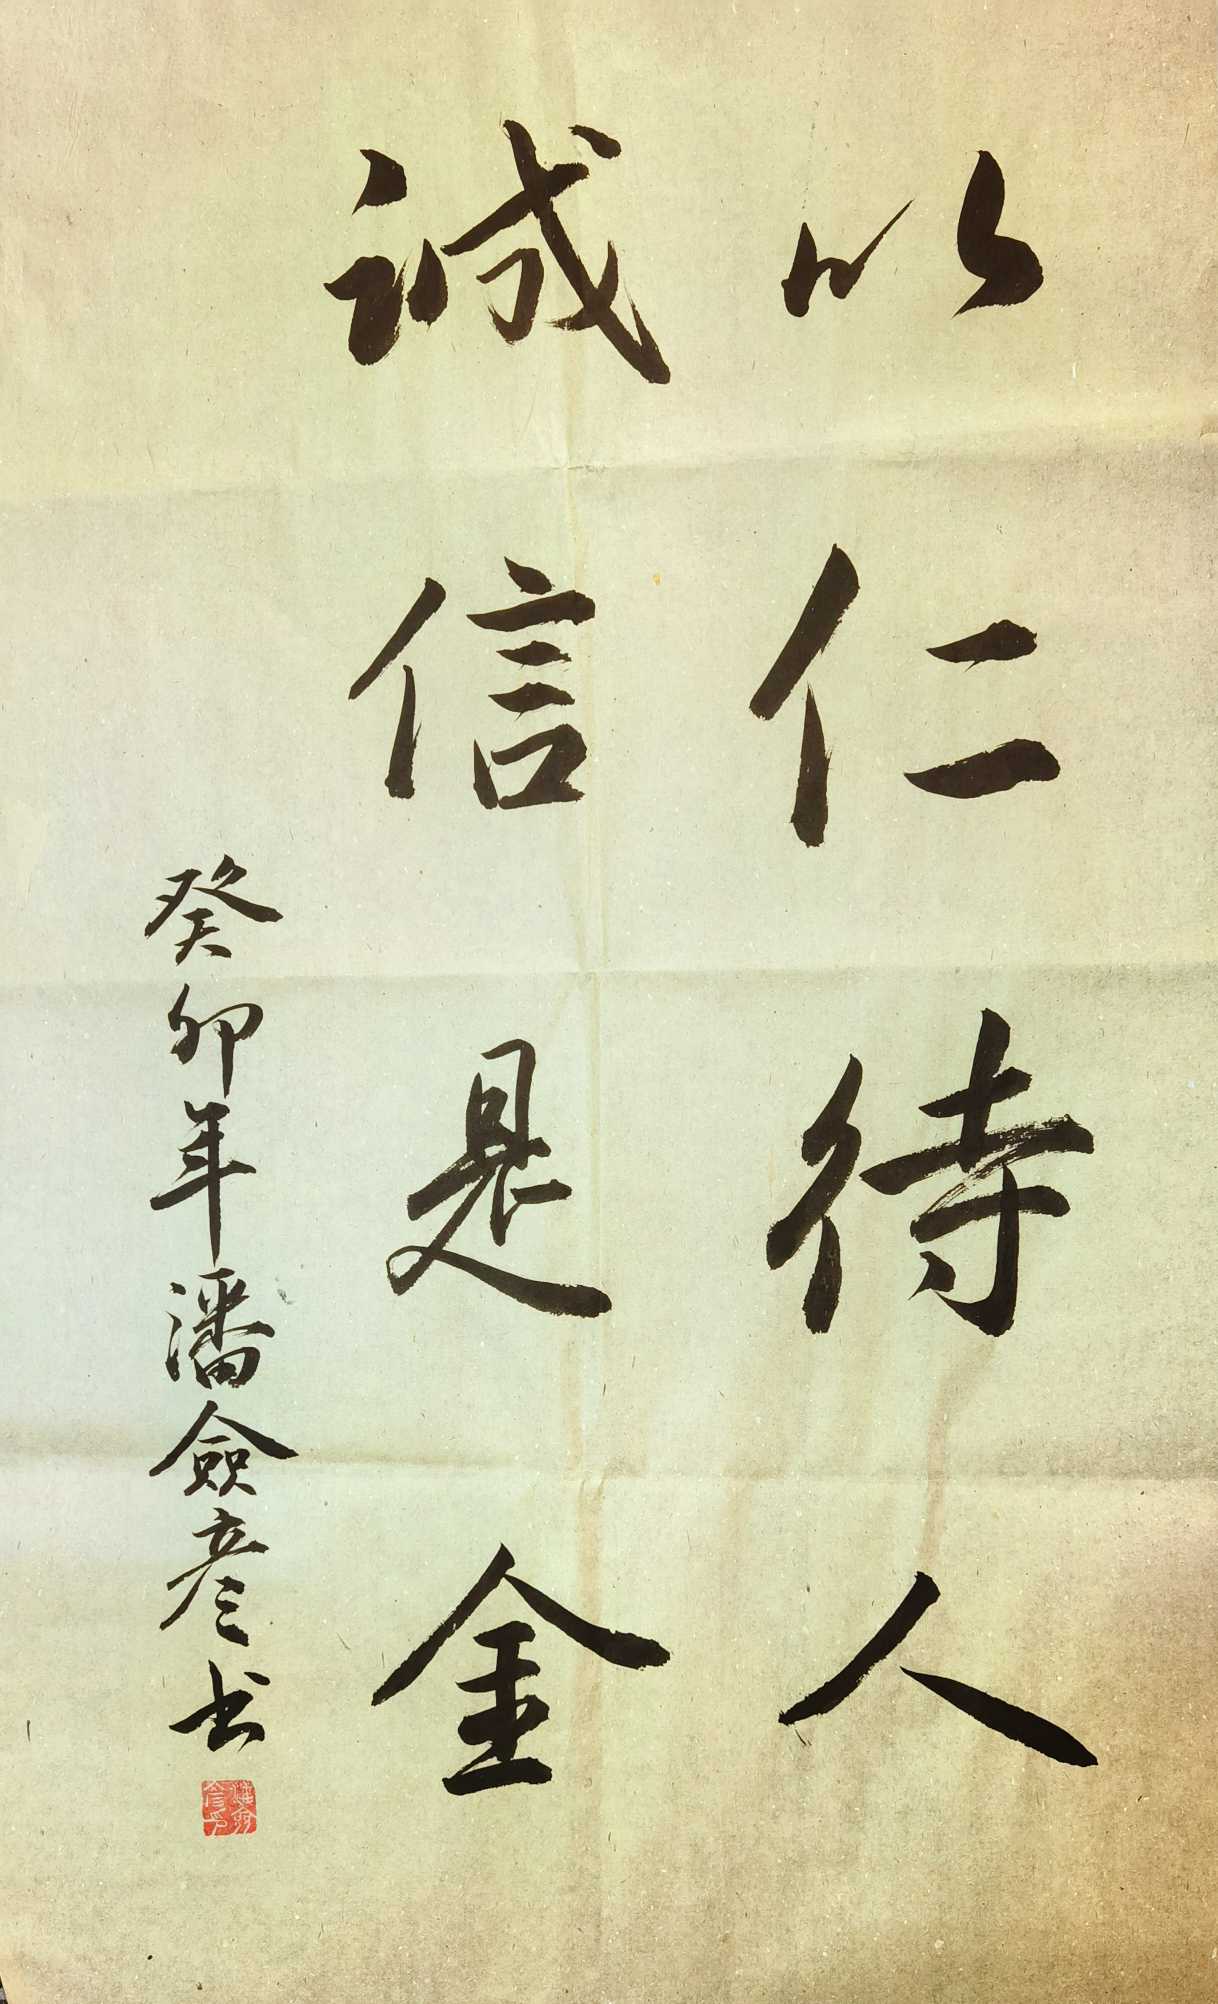 以仁待人
誠信是金
癸卯年潘僉彦书